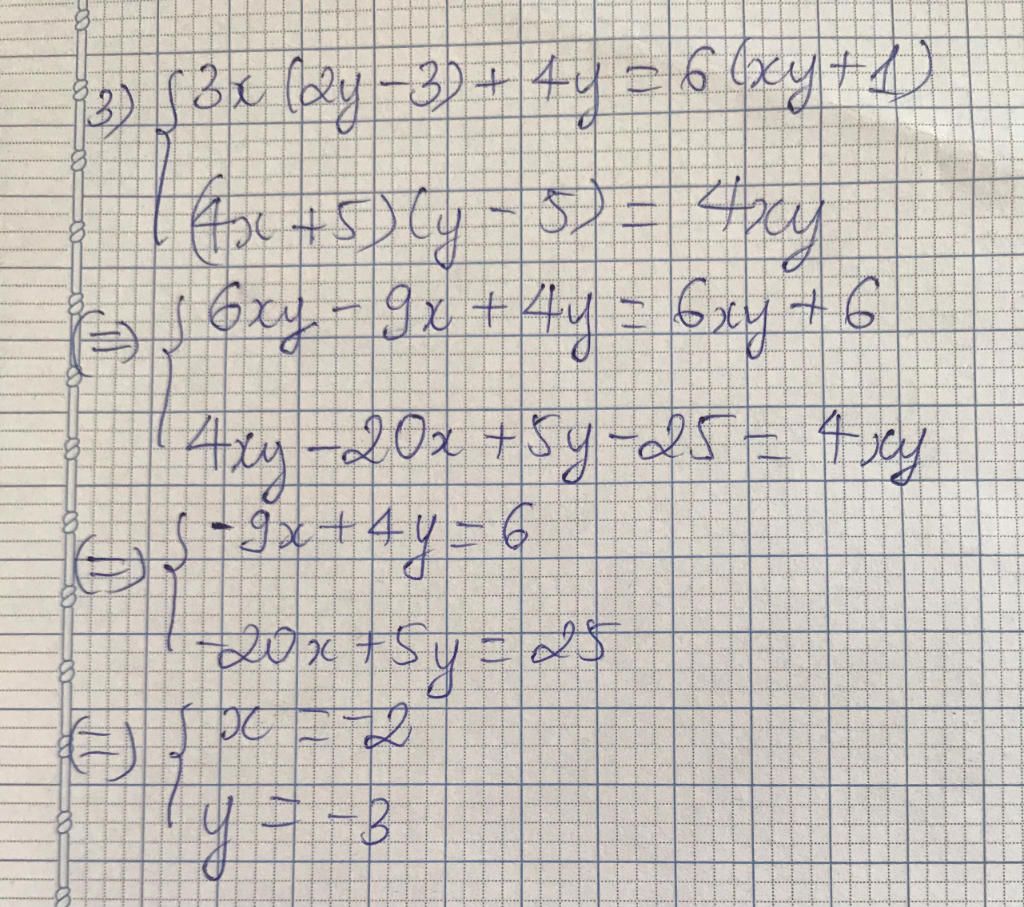 3) { 3x (2y - 3) + 4y = 6 (xy + 1)
(4x + 5) (y - 5) = 4xy
(=) { 6xy - 9x + 4y = 6xy + 6
4xy - 20x + 5y - 25 = 4xy
(=) { -9x + 4y = 6
-20x + 5y = 25
(=) { x = -2
y = -3